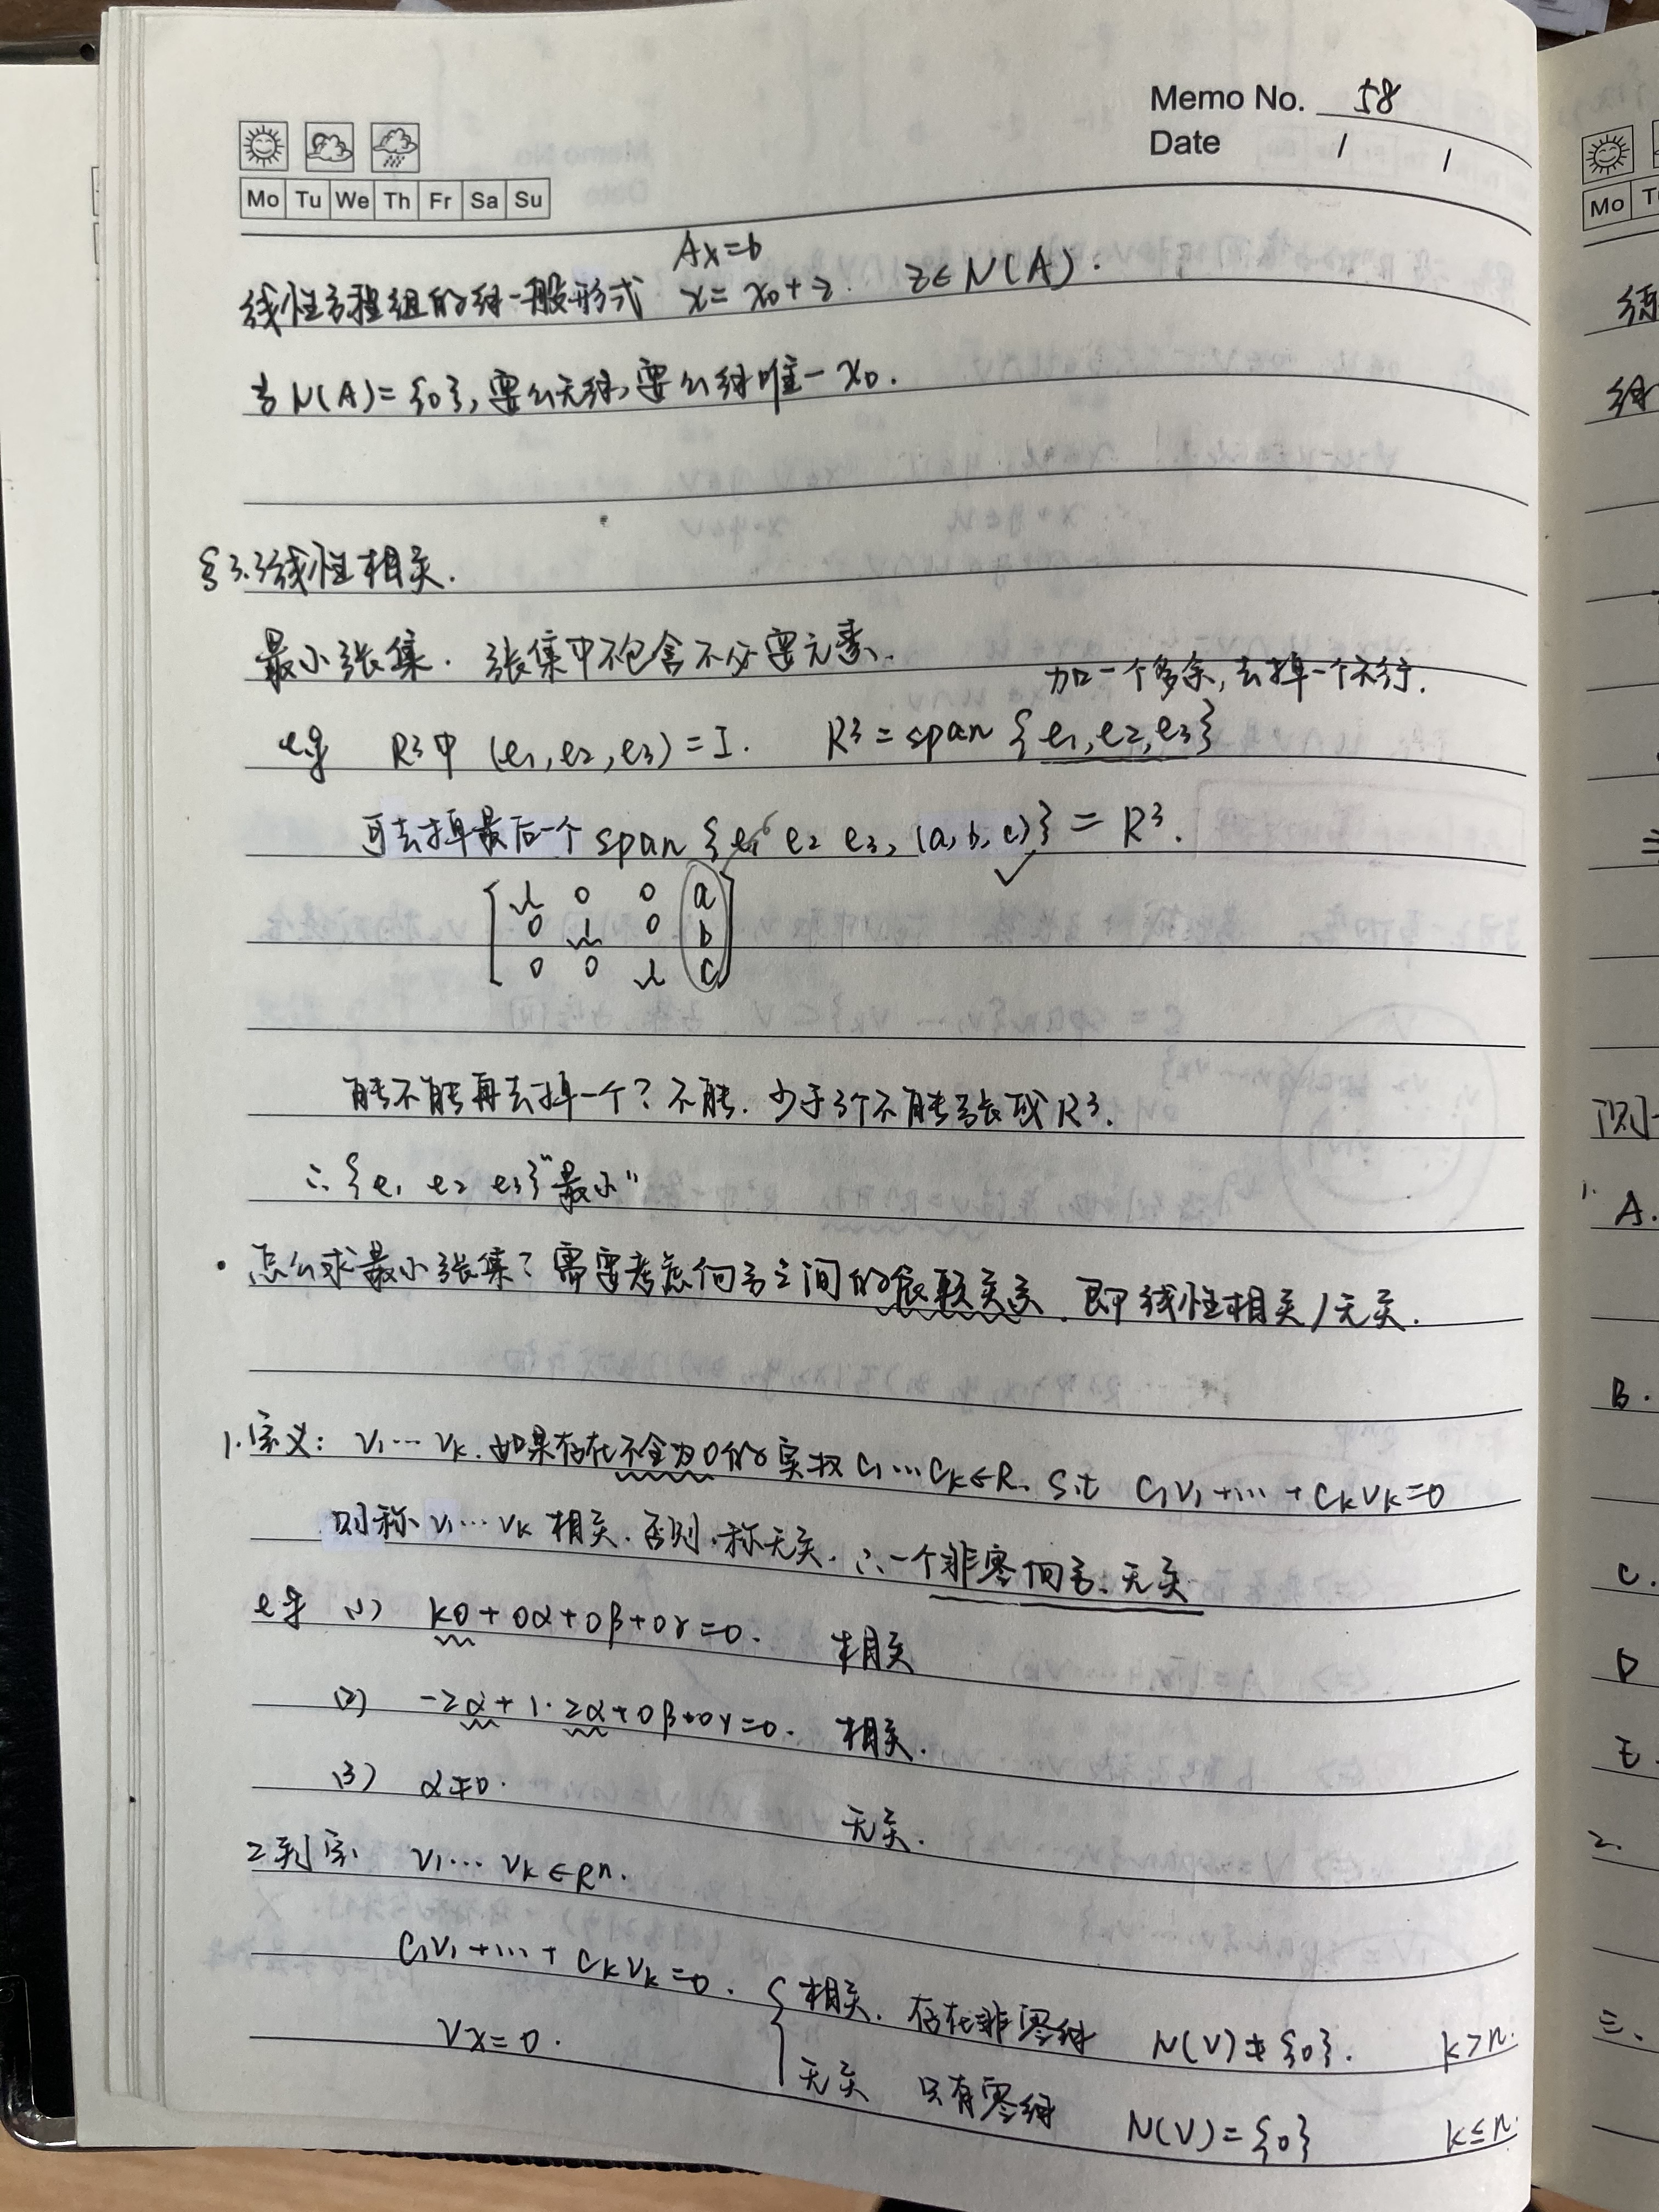 Memo No. 58
Date / /
Mo Tu We Th Fr Sa Su
Ax=b
线性方程组的解一般形式 x=x₀+z. z∈N(A).
当N(A)={0}, 要么无解, 要么解唯一 x₀.
§3.3线性相关.
最小张集. 张集中不包含不必要元素.
加一个多余,去掉一个不行.
e.g R³中 (e₁,e₂,e₃)=I. R³=span{e₁,e₂,e₃}
可去掉最后一个 span{e₁ e₂ e₃, (a,b,c)}=R³.
1 0 0 a
0 1 0 b
0 0 1 c
能不能再去掉一个? 不能. 少于3个不能张成R³.
∴{e₁ e₂ e₃}"最小"
·怎么求最小张集? 需要考虑向量之间的依赖关系. 即线性相关/无关.
1.定义: v₁…vₖ. 如果存在不全为0的实数c₁…cₖ∈R. s.t c₁v₁+…+cₖvₖ=0
则称v₁…vₖ相关. 否则.称无关. ∴一个非零向量.无关
eg (1) k0+0α+0β+0γ=0. 相关
(2) -2α+1·2α+0β+0γ=0. 相关.
(3) α≠0. 无关.
2判定 v₁…vₖ∈Rⁿ.
c₁v₁+…+cₖvₖ=0. { 相关. 存在非零解 N(V)≠{0}. k>n.
Vx=0. 无关 只有零解 N(V)={0} k≤n.
Mo
练
解
则
1. A.
B.
C.
D
E.
2.
三.